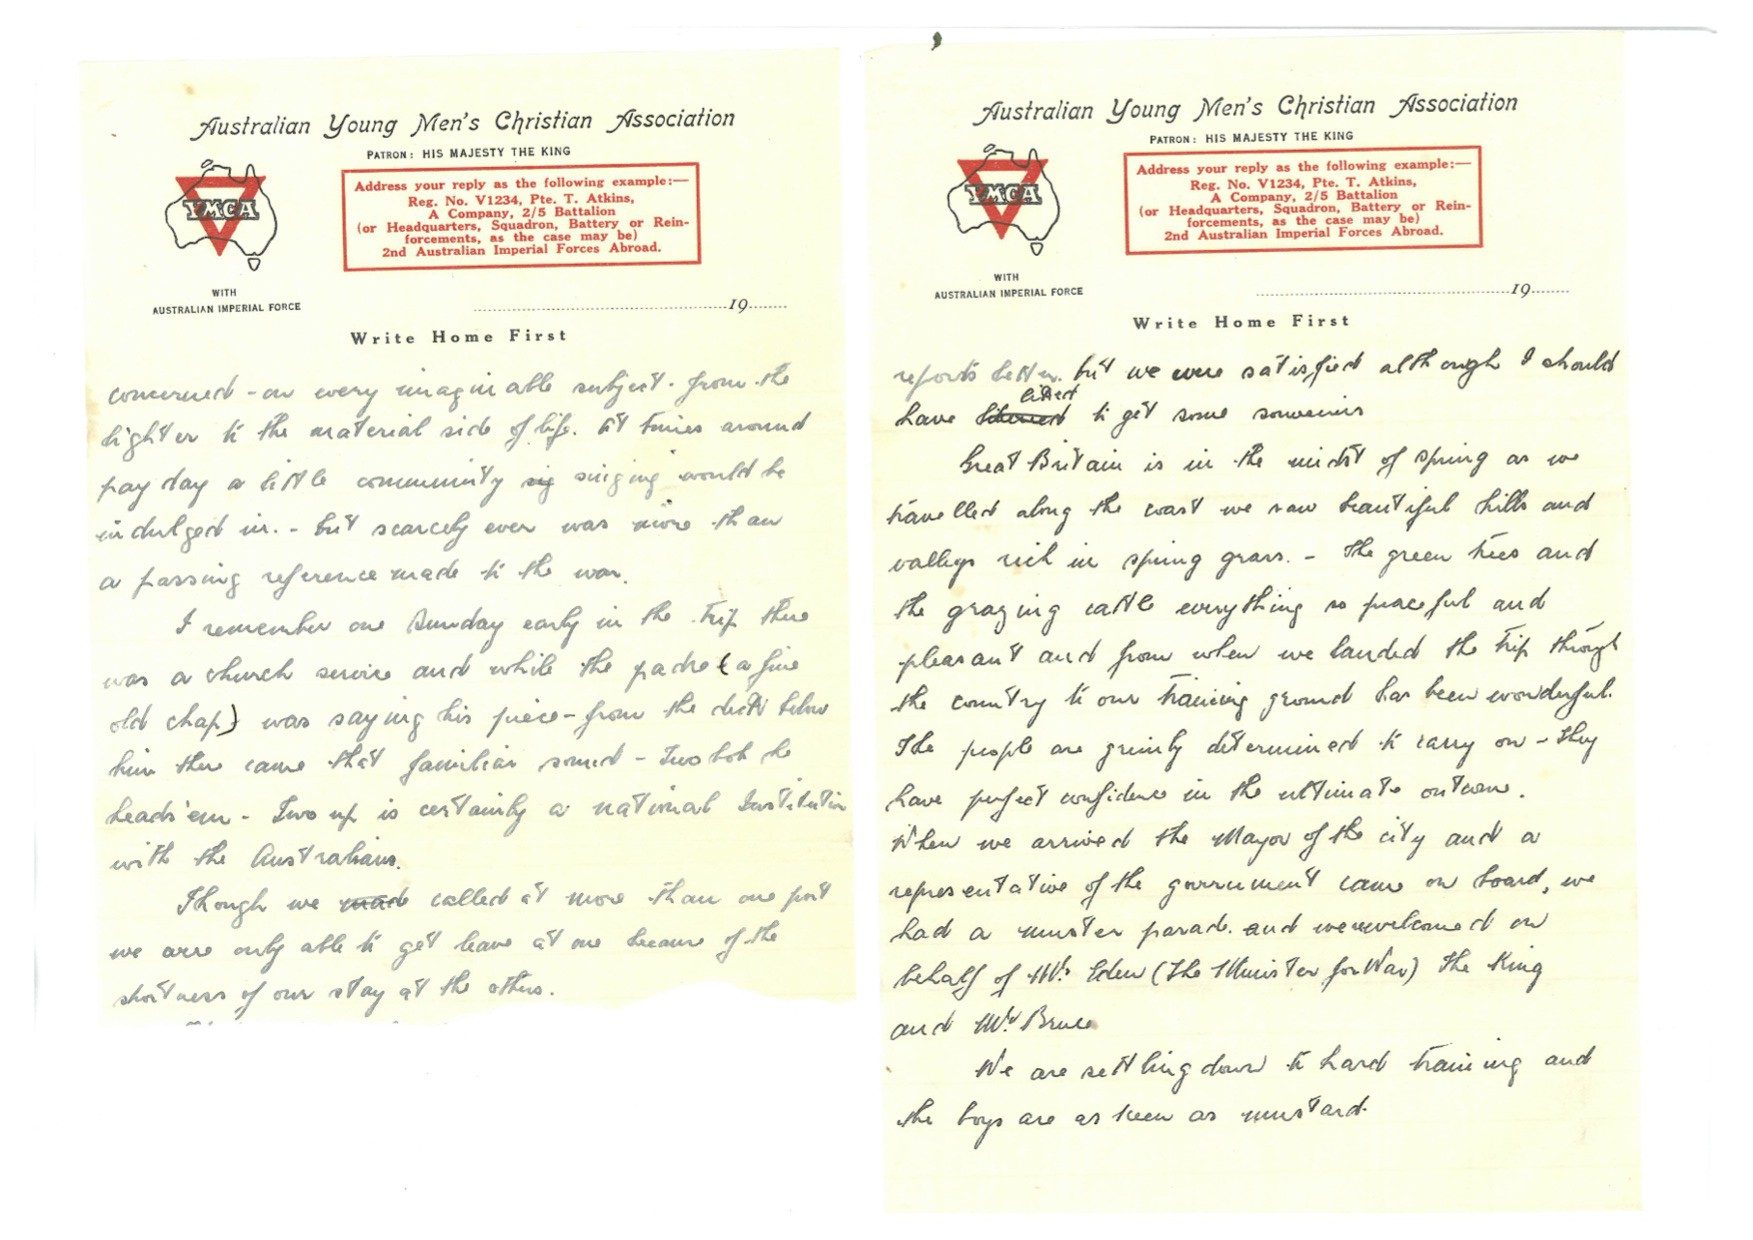 Australian Young Men's Christian Association
PATRON: HIS MAJESTY THE KING
YMCA
Address your reply as the following example:—
Reg. No. V1234, Pte. T. Atkins,
A Company, 2/5 Battalion
(or Headquarters, Squadron, Battery or Rein-
forcements, as the case may be)
2nd Australian Imperial Forces Abroad.
WITH
AUSTRALIAN IMPERIAL FORCE
19
Write Home First
concerned - on every imaginable subject - from the
lighter to the material side of life. At times around
pay day a little community sig singing would be
indulged in. - but scarcely ever was more than
a passing reference made to the war.
I remember one Sunday early in the trip there
was a church service and while the padre (a fine
old chap) was saying his piece - from the deck below
him there came that familiar sound - Two bob he
heads 'em - Two up is certainly a national Institution
with the Australians.
Though we made called at more than one port
we were only able to get leave at one because of the
shortness of our stay at the others.
Australian Young Men's Christian Association
PATRON: HIS MAJESTY THE KING
YMCA
Address your reply as the following example:—
Reg. No. V1234, Pte. T. Atkins,
A Company, 2/5 Battalion
(or Headquarters, Squadron, Battery or Rein-
forcements, as the case may be)
2nd Australian Imperial Forces Abroad.
WITH
AUSTRALIAN IMPERIAL FORCE
19
Write Home First
reports better. but we were satisfied although I should
liked
have to get some souvenirs
Great Britain is in the midst of spring as we
travelled along the coast we saw beautiful hills and
valleys rich in spring grass. - The green trees and
the grazing cattle everything so peaceful and
pleasant and from when we landed the trip through
the country to our training ground has been wonderful.
The people are grimly determined to carry on - they
have perfect confidence in the ultimate outcome.
When we arrived the Mayor of the city and a
representative of the government came on board, we
had a muster parade. and were welcomed on
behalf of Mr. Eden (The Minister for War) The King
and Mr. Bruce
We are settling down to hard training and
the boys are as keen as mustard.